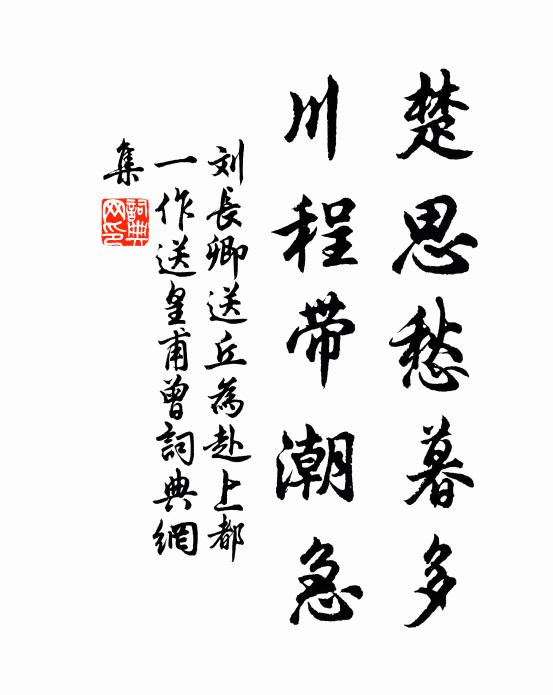 楚思愁暮多
川程带潮急
刘長卿送丘為赴上都
一作送皇甫曾詞典網
集
詞典
网印